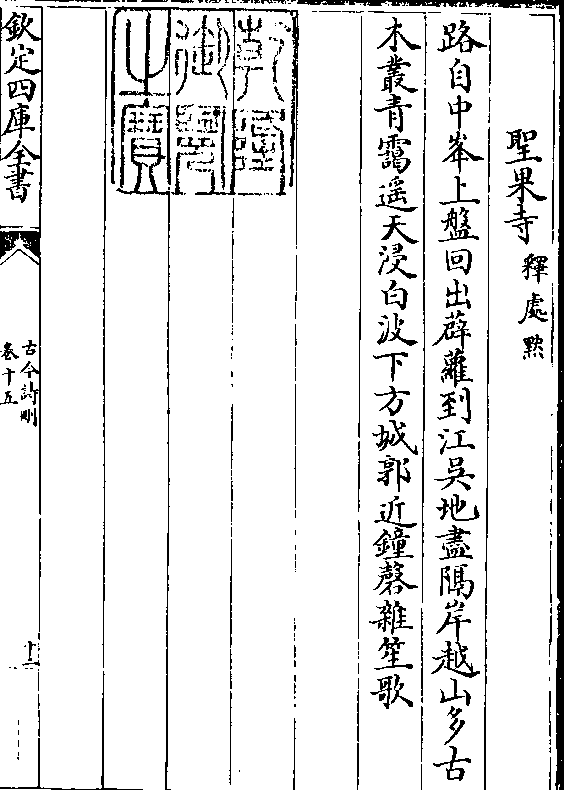 聖果寺 釋處黙
路自中峯上盤回出薜蘿到江吳地盡隔岸越山多古
木叢青靄遥天浸白波下方城郭近鐘磬雜笙歌
乾隆御覽之寶
欽定四庫全書
古今詩刪
卷十五
十二